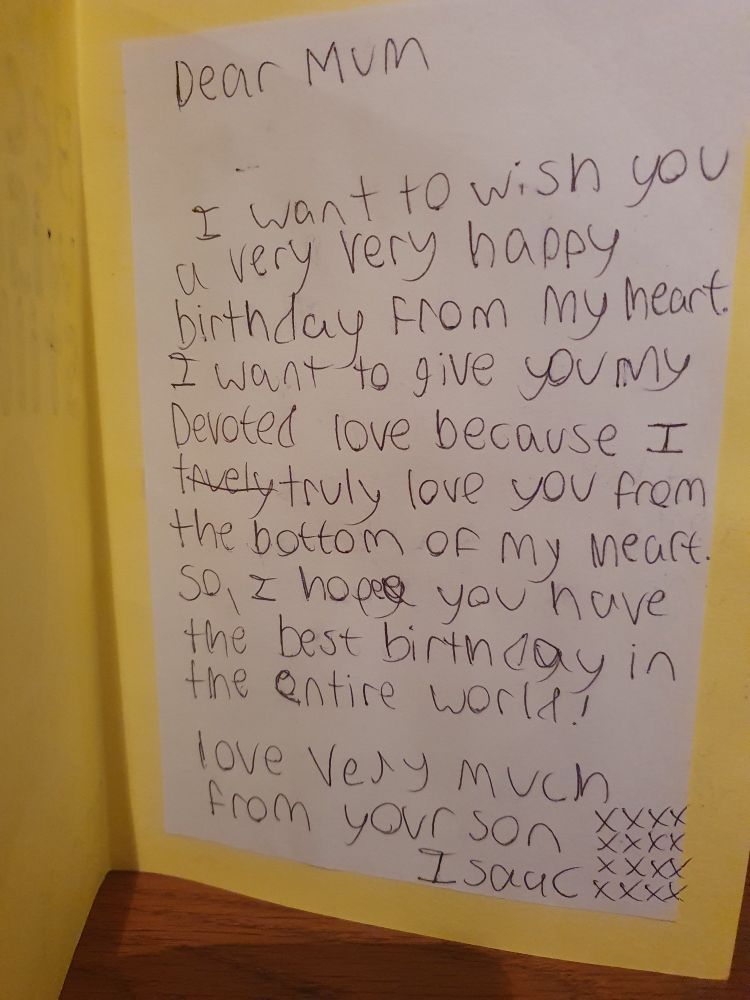 Dear Mum
I want to wish you
a very very happy
birthday from my heart.
I want to give you my
Devoted love because I
truely truly love you from
the bottom of my heart.
So, I hope you have
the best birthday in
the entire world!
love very much
from your son xxxx
xxxx
Isaac xxxx
xxxx